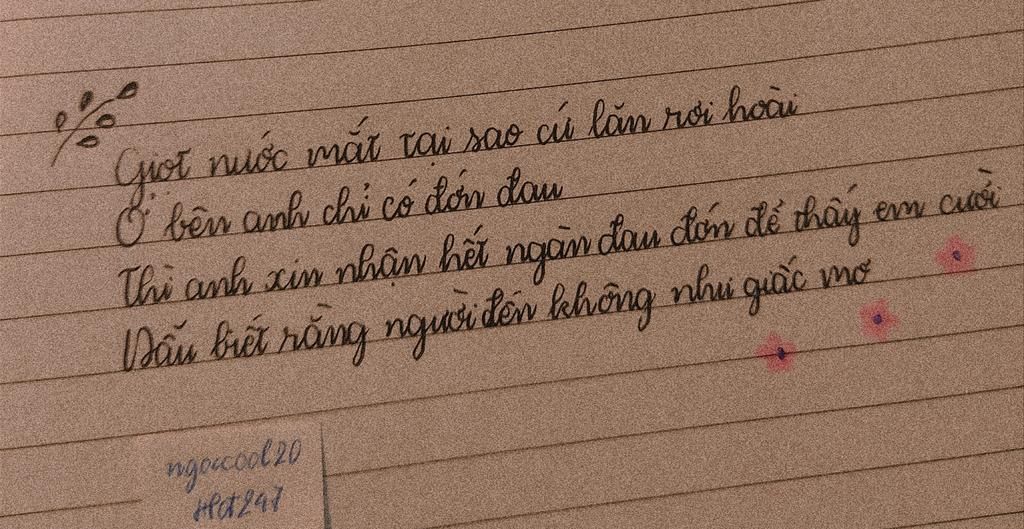 Giọt nước mắt tại sao cứ lăn rơi hoài
Ở bên anh chỉ có đớn đau
Thì anh xin nhận hết ngàn đau đớn để thấy em cười
Dẫu biết rằng người đến không như giấc mơ
ngoccool20
Hđ247